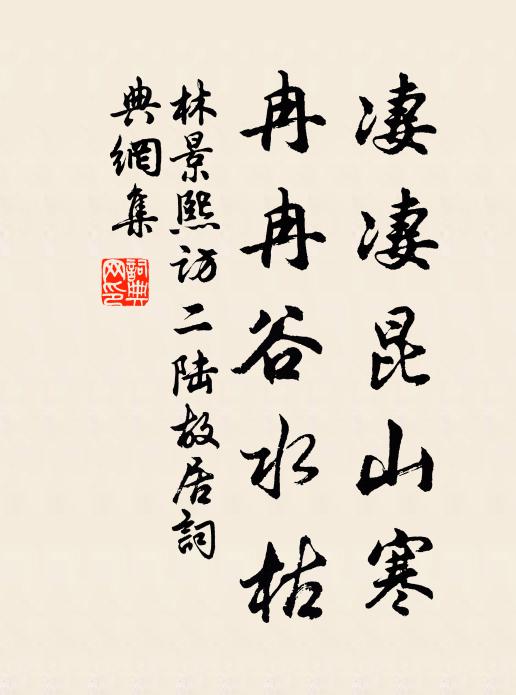 凄凄昆山寒
冉冉谷水枯
林景熙訪二陆故居詞
典網集
詞典
网印